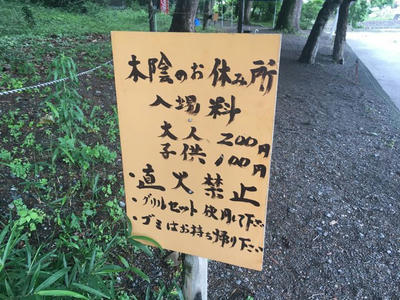 木陰のお休み所
入場料
大人 200円
子供 100円
・直火禁止
・グリルセット使用して下さい
・ゴミはお持ち帰り下さい